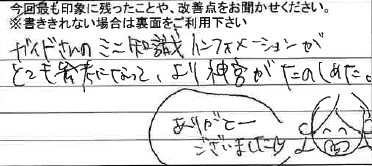 今回最も印象に残ったことや、改善点をお聞かせください。
※書ききれない場合は裏面をご利用下さい
ガイドさんのミニ知識インフォメーションが
とても参考になって、より神宮がたのしめた。
ありがとー
ございましたm